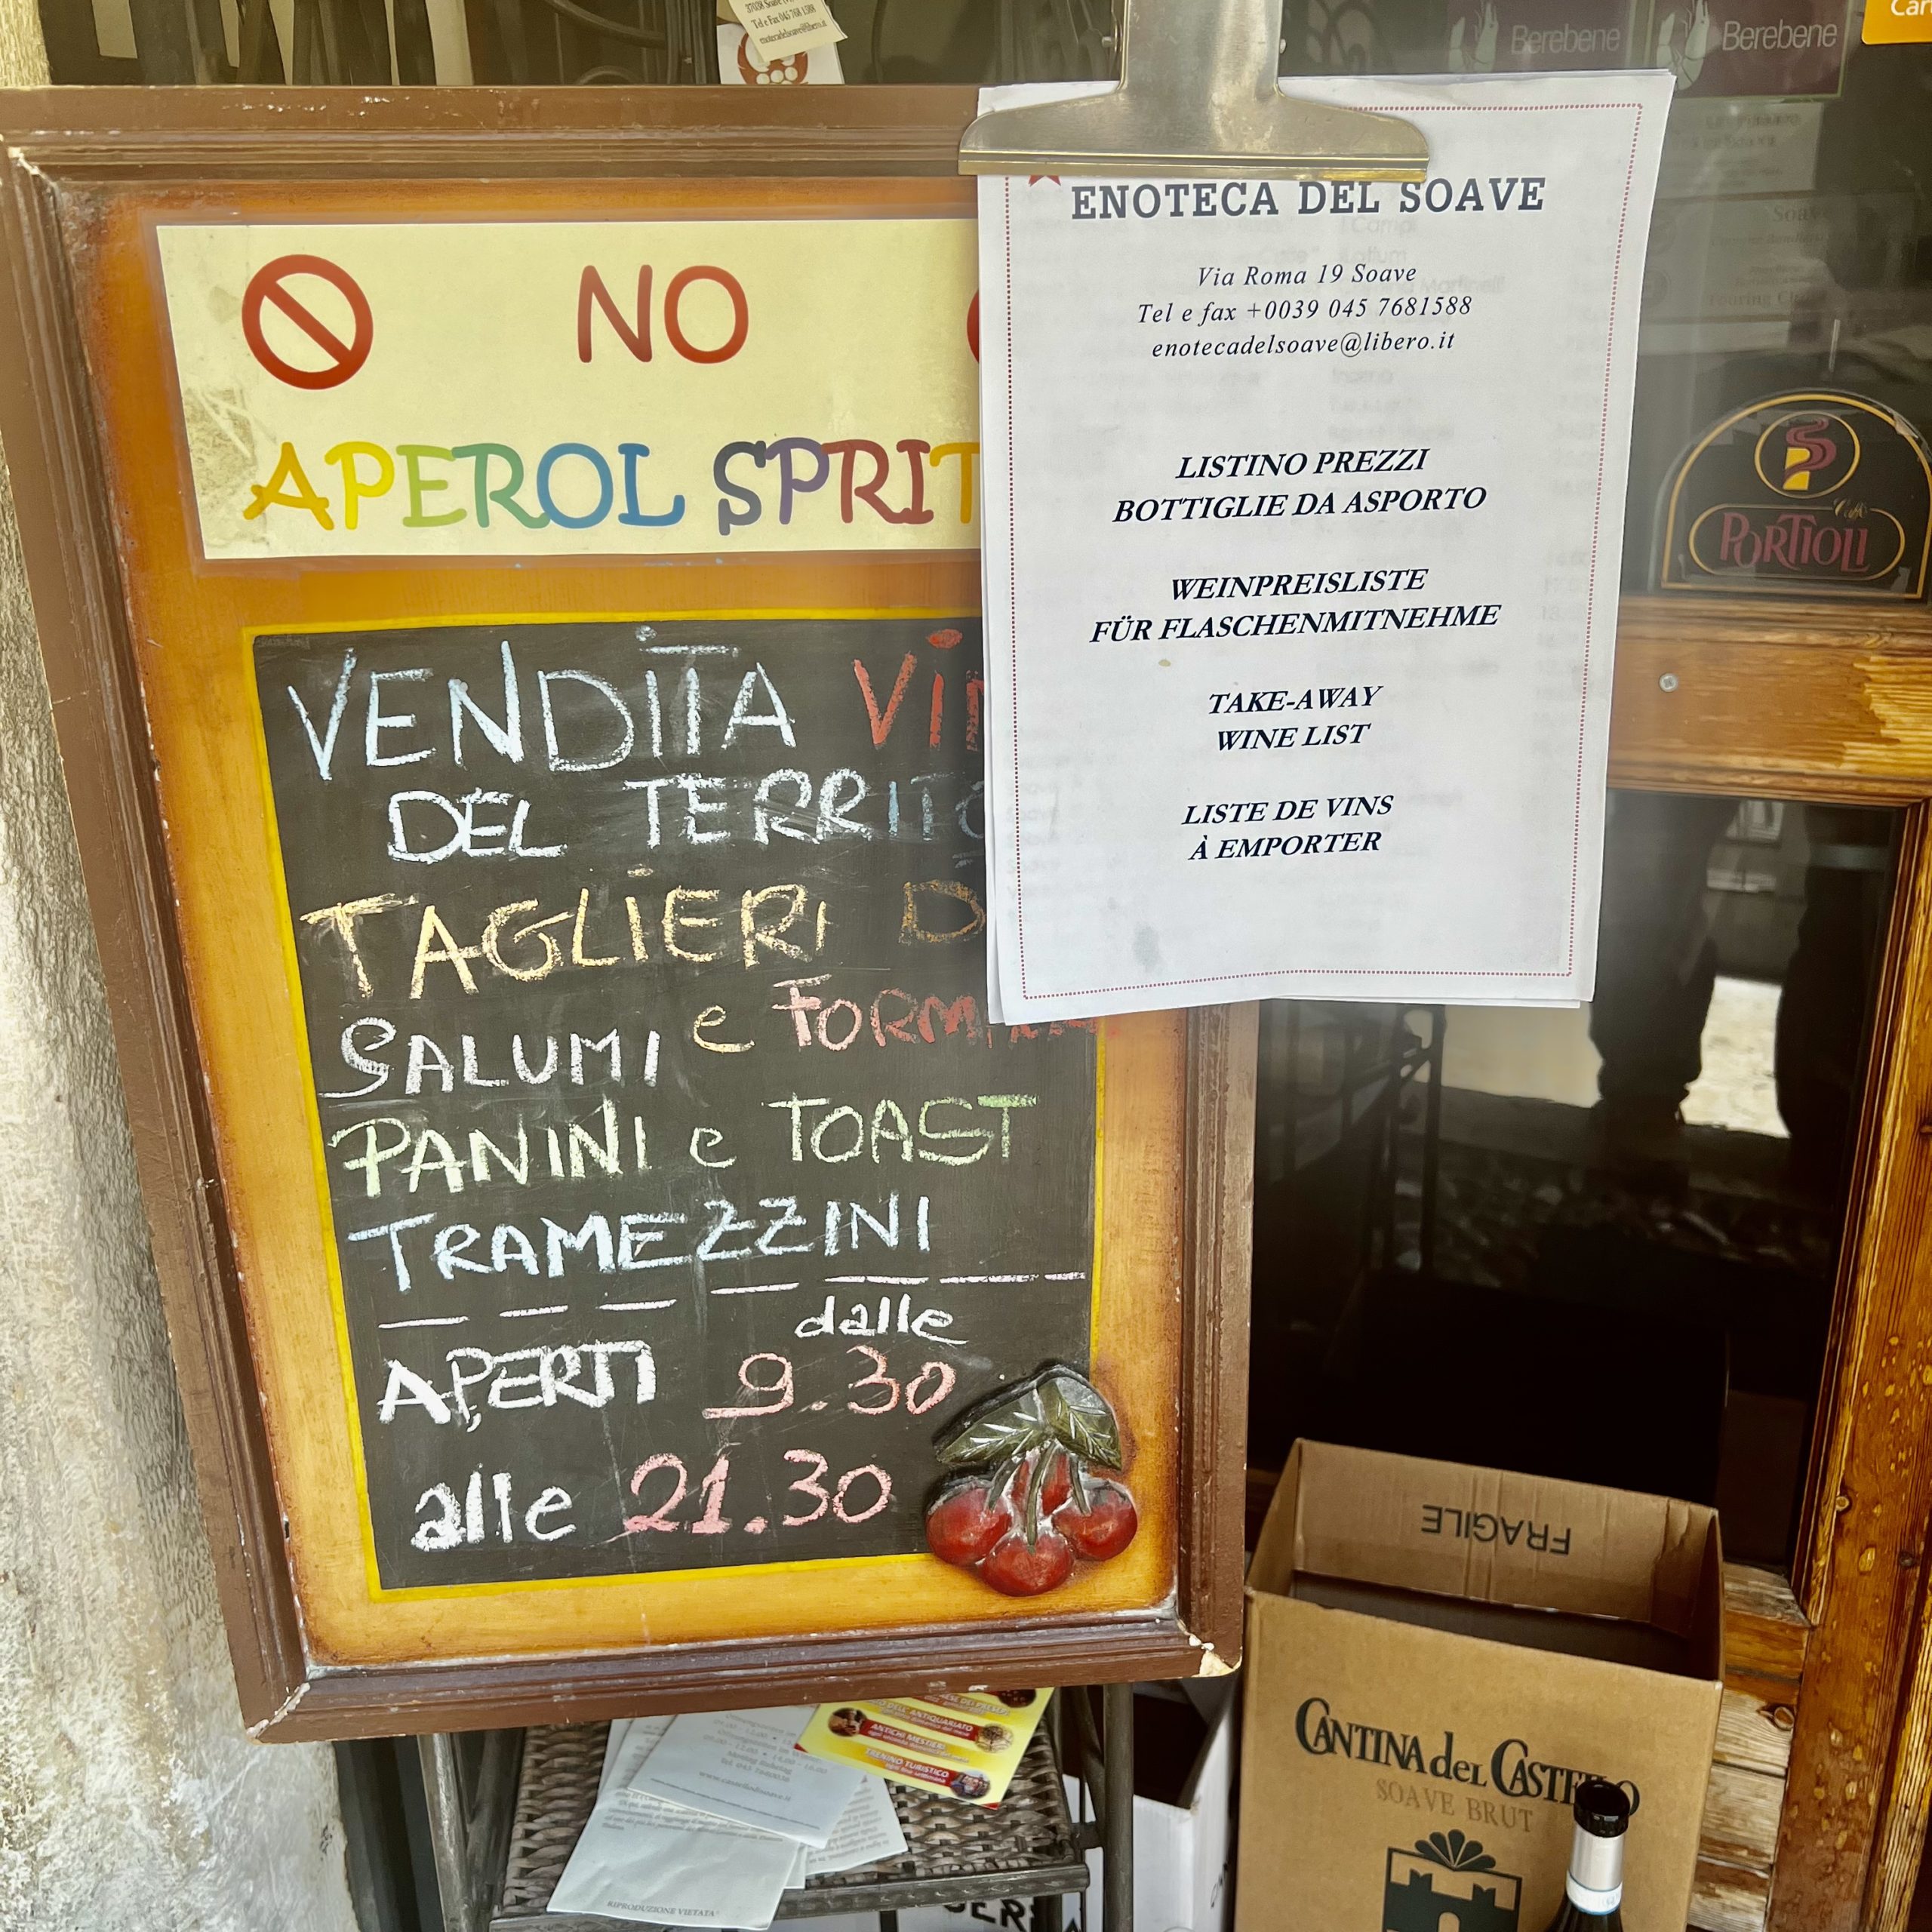 Berebene
Berebene
NO
APEROL SPRIT
VENDITA VIN
DEL TERRITO
TAGLIERI D
SALUMI e FORMA
PANINI e TOAST
TRAMEZZINI
APERTI dalle 9.30
alle 21.30
ENOTECA DEL SOAVE
Via Roma 19 Soave
Tel e fax +0039 045 7681588
enotecadelsoave@libero.it
LISTINO PREZZI
BOTTIGLIE DA ASPORTO
WEINPREISLISTE
FÜR FLASCHENMITNEHME
TAKE-AWAY
WINE LIST
LISTE DE VINS
À EMPORTER
Caffè
PORTIOLI
FRAGILE
CANTINA del CASTELLO
SOAVE BRUT
ANTICHI MESTIERI
TRENINO TURISTICO
RIPRODUZIONE VIETATA